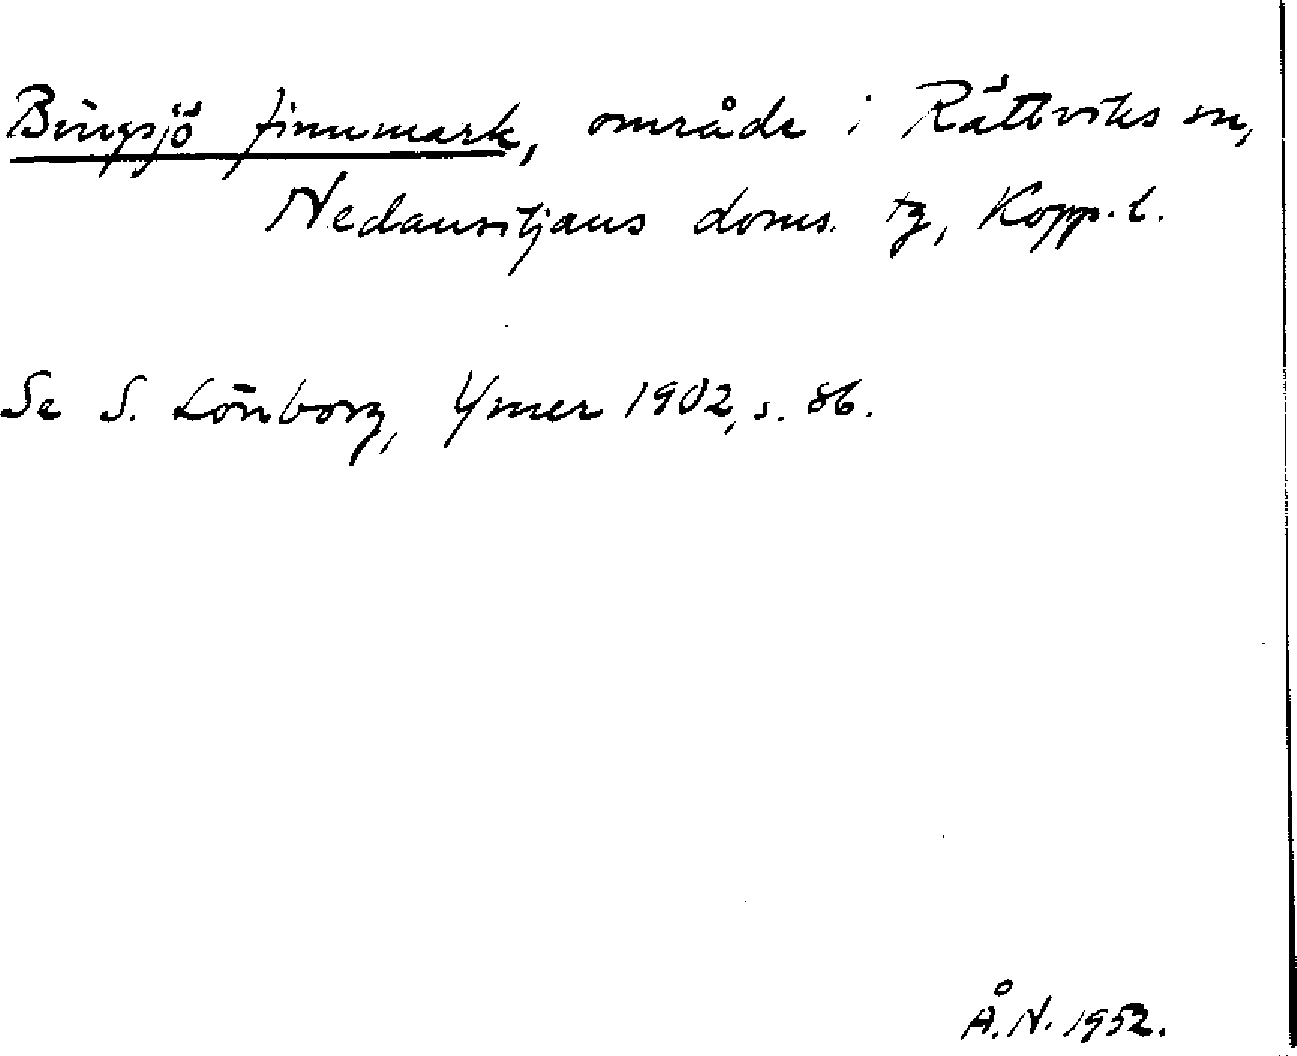 Bingsjö finnmark, område i Rättviks sn,
Nedansiljans doms. tg, Kopp. l.
Se S. Lönborg, Ymer 1902, s. 86.
Å. N. 1952.